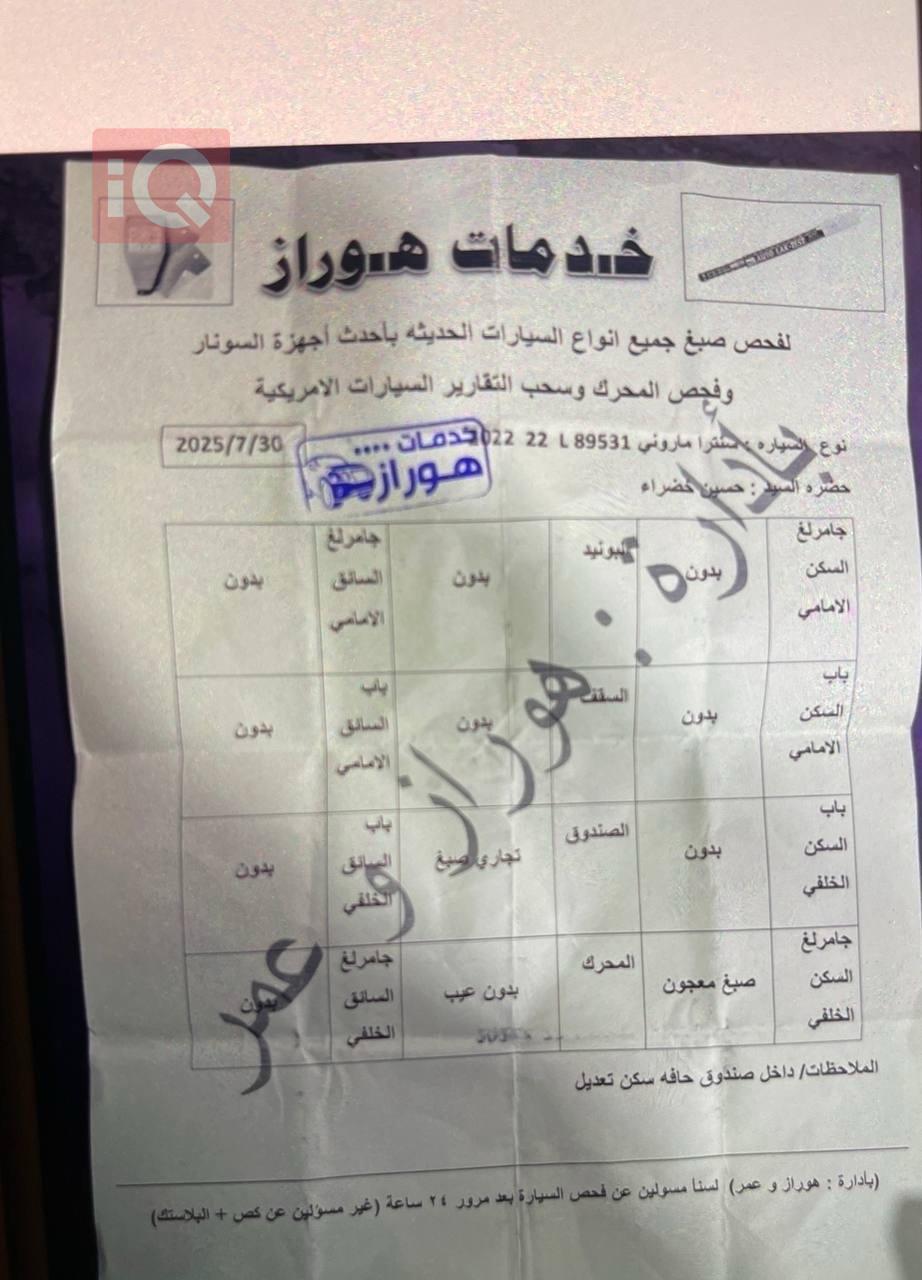 iQ
خدمات هوراز
AUTO CAR-TEST
لفحص صبغ جميع انواع السيارات الحديثه بأحدث أجهزة السونار
وفحص المحرك وسحب التقارير السيارات الامريكية
نوع السياره : سنترا ماروني 2022 22 L 89531
2025/7/30
خدمات ....
هوراز
حضره السيد : حسين خضراء
جامرلغ السكن الامامي
بدون
البونيد
بدون
جامرلغ السائق الامامي
بدون
باب السكن الامامي
بدون
السقف
بدون
باب السائق الامامي
بدون
باب السكن الخلفي
بدون
الصندوق
تجاري صبغ
باب السائق الخلفي
بدون
جامرلغ السكن الخلفي
صبغ معجون
المحرك
بدون عيب
جامرلغ السائق الخلفي
بدون
بأدارة : هوراز و عمر
الملاحظات/ داخل صندوق حافه سكن تعديل
(بأدارة : هوراز و عمر) لسنأ مسولين عن فحص السيارة بعد مرور ٢٤ ساعة (غير مسؤلين عن كص + البلاستك)